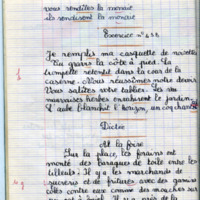 vous vendîtes la menuit
ils vendirent la menuit
Exercice n° 438
Je remplis ma casquette de noisettes
Tu gravis la côte à pied. La
trompette retentit dans la cour de la
caserne. Nous réussîmes notre devoir
Vous salîtes votre tablier. Les
mauvaises herbes envahirent le jardin.
L'aube blanchit l'horizon, un coq chanta
Dictée
A la foire
Sur la place, les forains ont
monté des baraques de toile entre les
tilleuls. Il y a les marchands de
sucreries et de fritures avec des gamins
collés contre eux comme des mouches sur